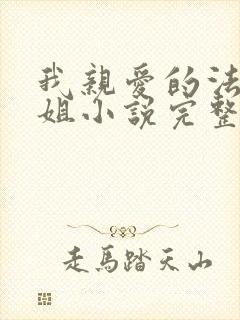 我親愛的法
姐小説完整
走馬踏天山